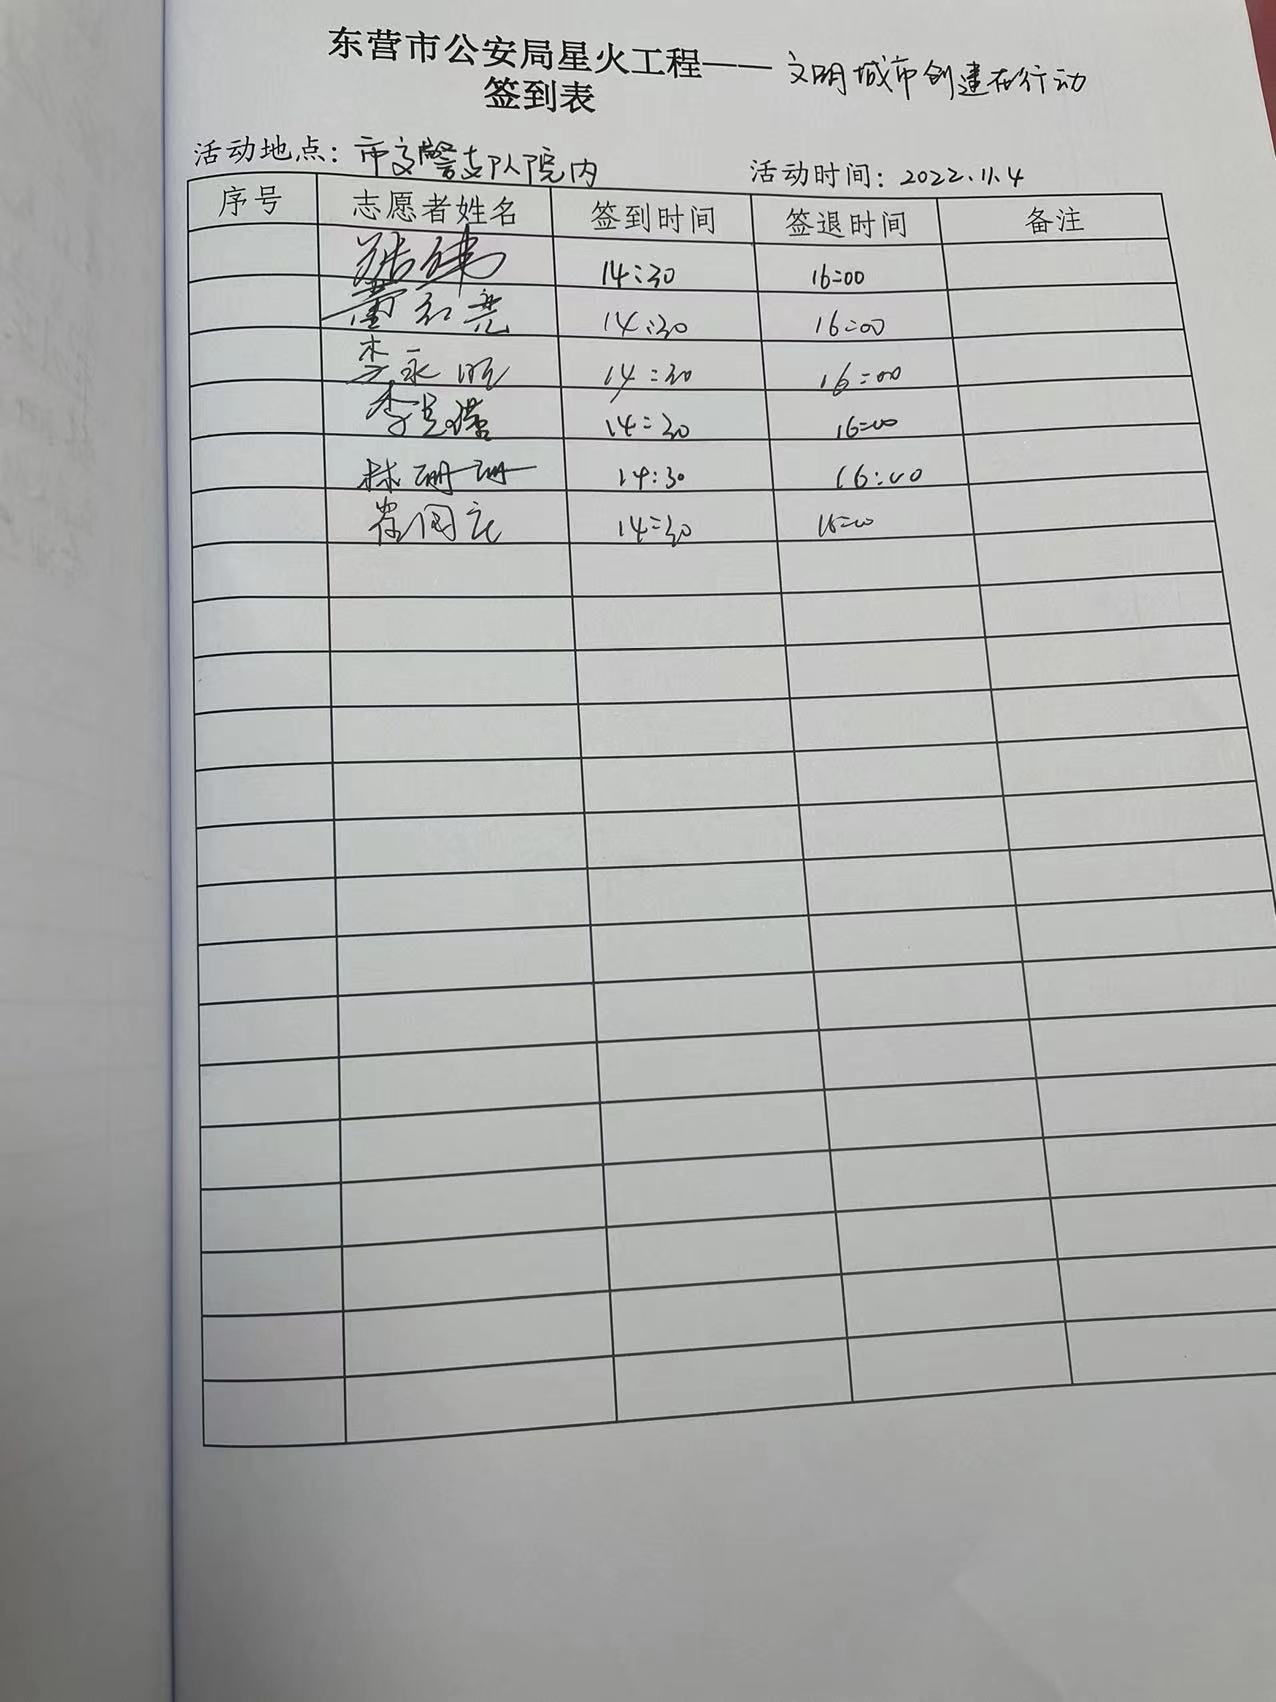 东营市公安局星火工程——文明城市创建在行动
签到表
活动地点：市交警支队院内 活动时间：2022.11.4
序号 志愿者姓名 签到时间 签退时间 备注
14:30 16:00
14:30 16:00
李永旺 14:30 16:00
李 14:30 16:00
林珊珊 14:30 16:00
14:30 16:00